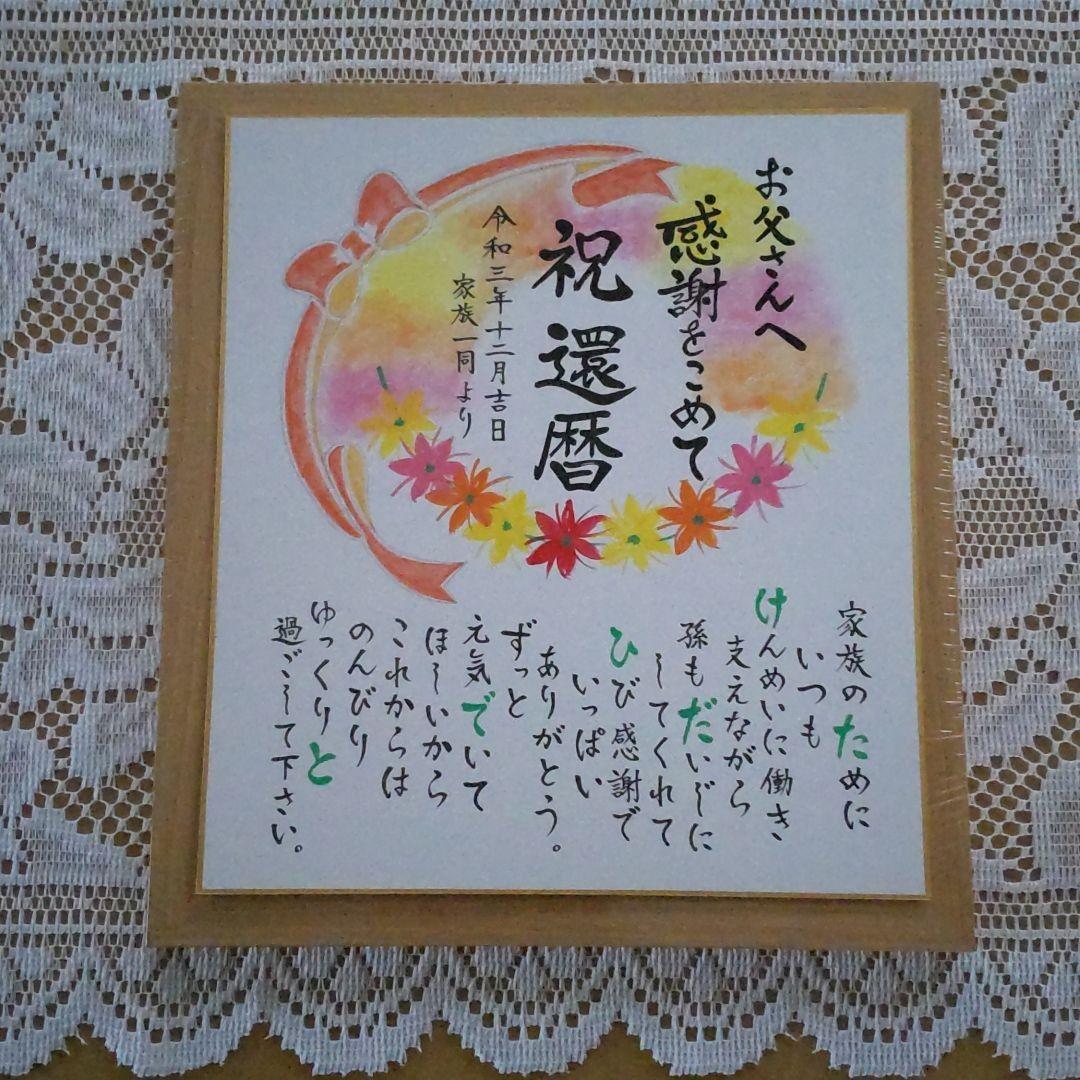 お父さんへ
感謝をこめて
祝還暦
令和三年十二月吉日
家族一同より
家族のために
いつも
けんめいに働き
支えながら
孫もだいじに
してくれて
ひび感謝で
いっぱい
ありがとう。
ずっと
元気でいて
ほしいから
これからは
のんびり
ゆっくりと
過ごして下さい。